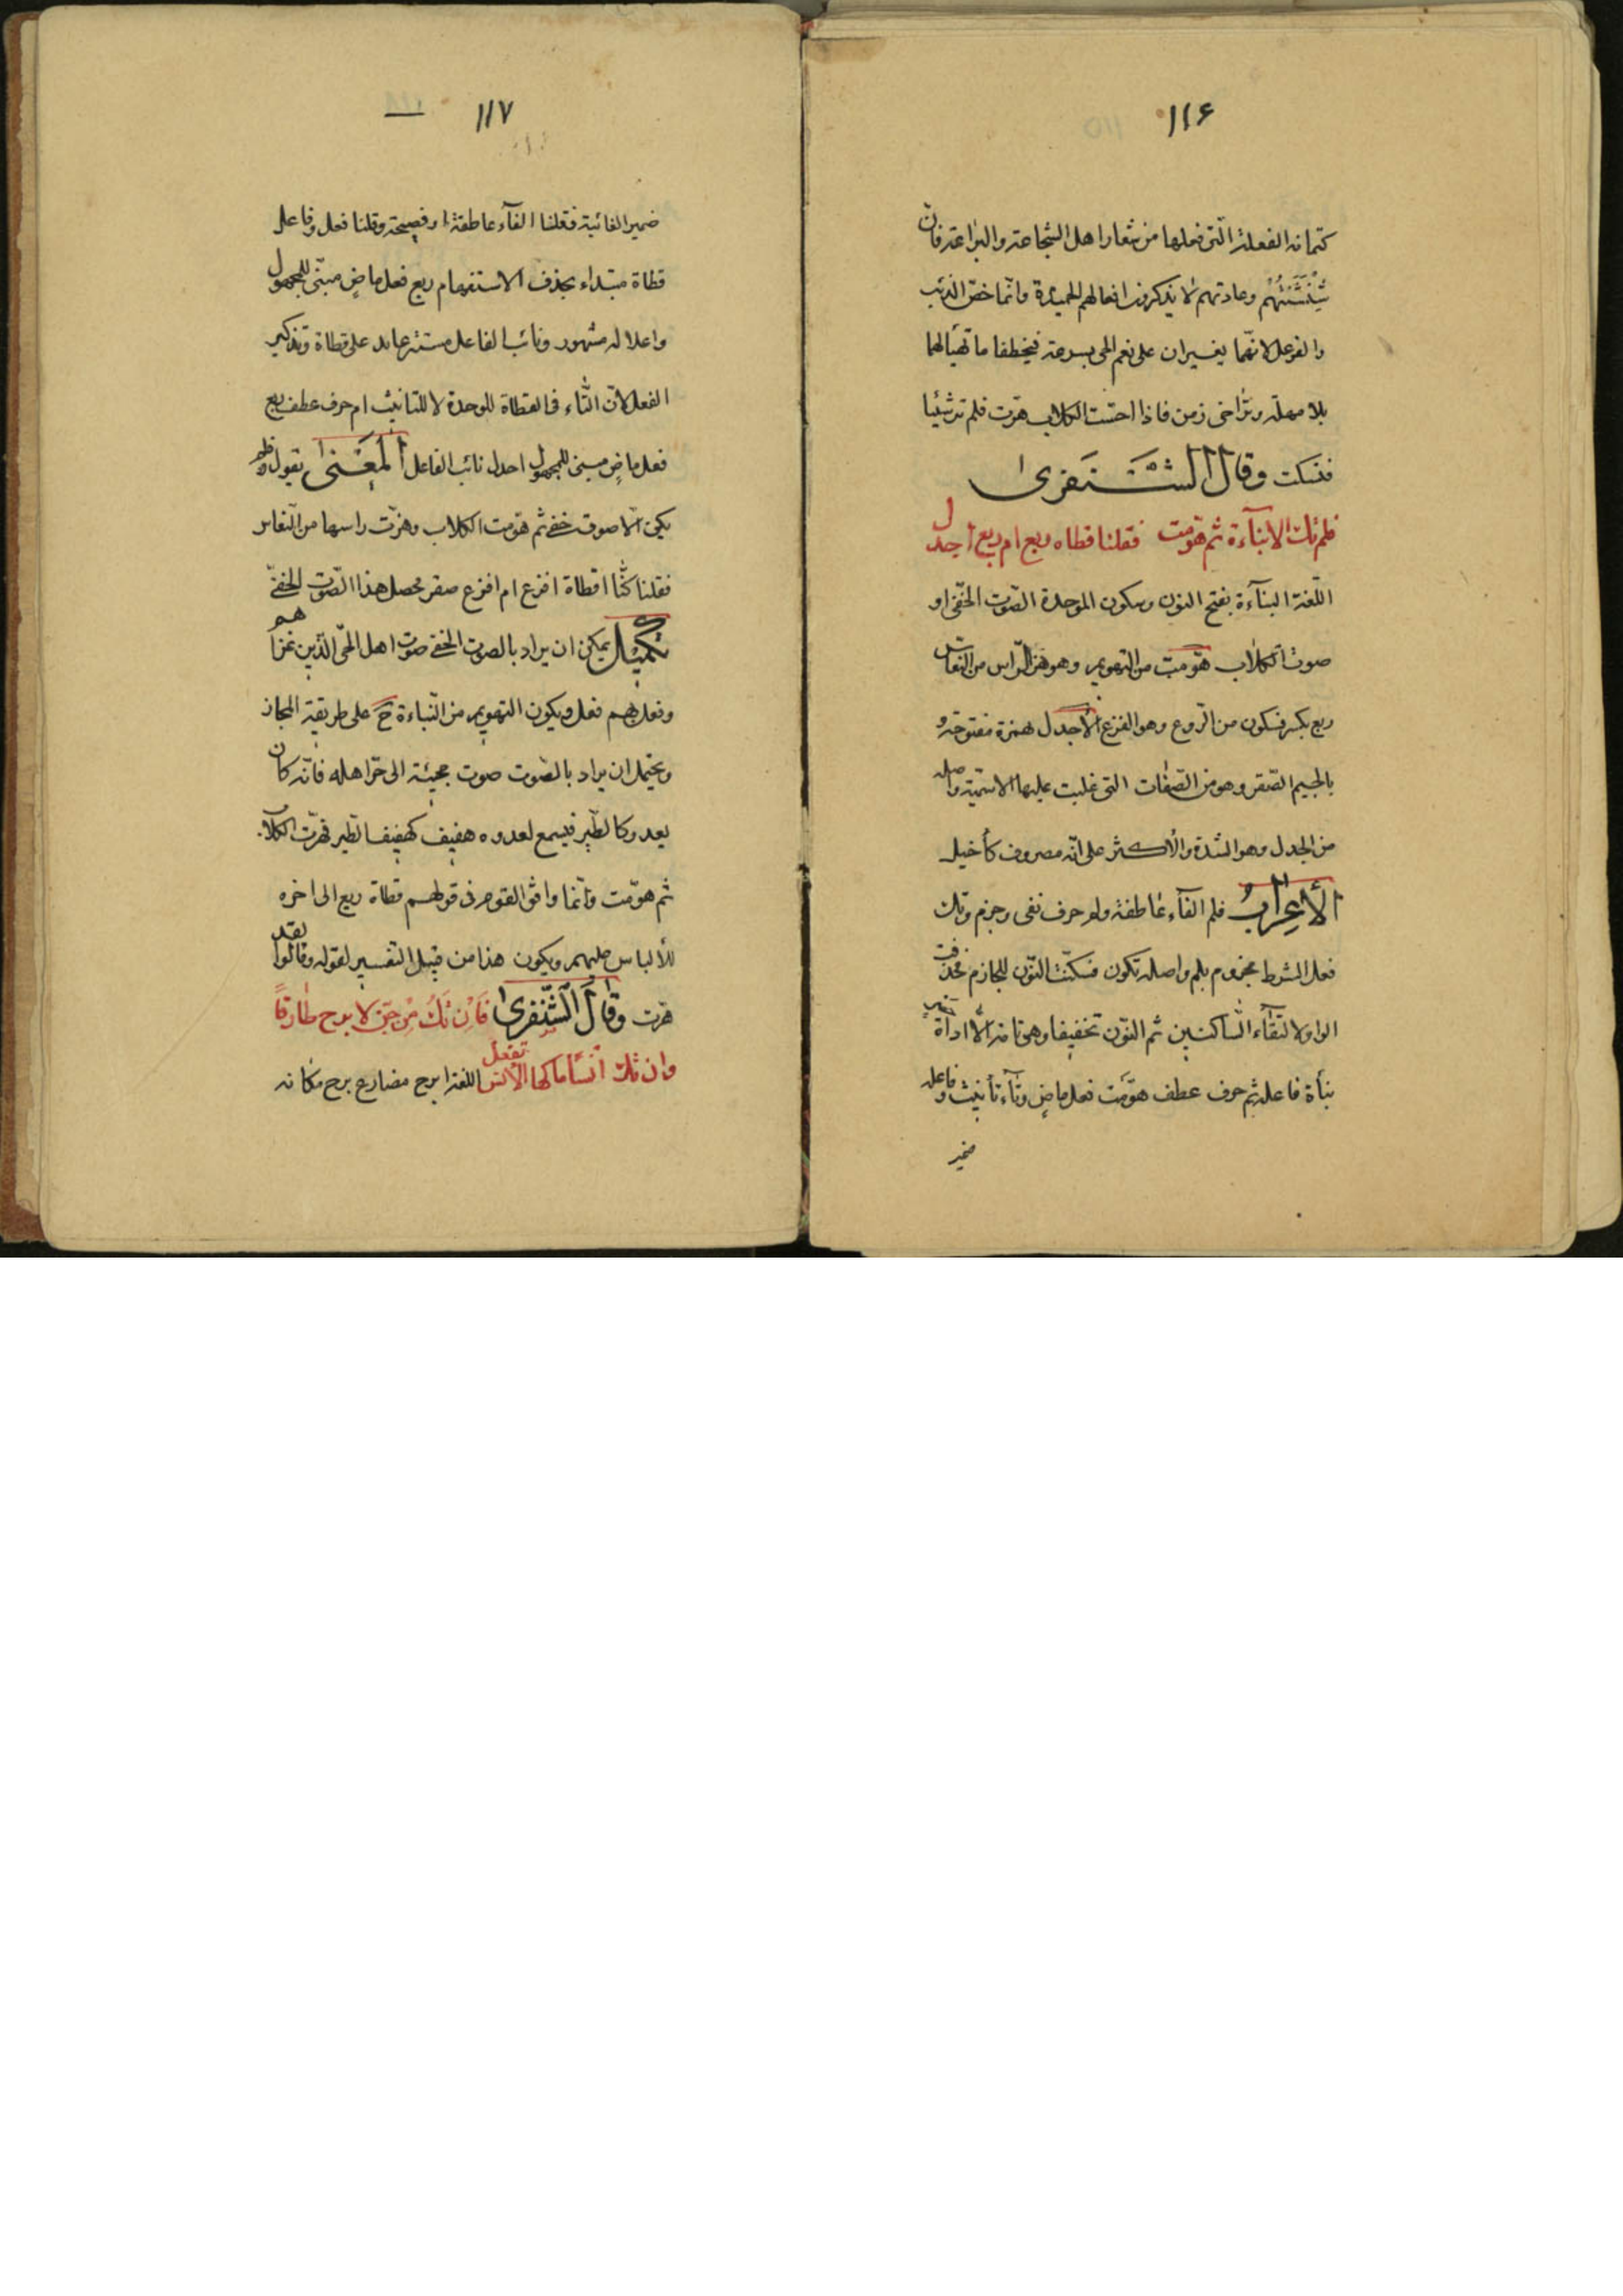 ١١۶
كتمانه الفعلة الّتى فعلها من شعار اهل الشجاعة والبراعة فانّ
شِنْشَنَتُهُم وعادتهم لا يذكرون افعالهم الحميدة وانّما خصّ الذئب
والفرعل لانّهما يغيران على نعم الحى بسرعة فيخطفا ما تهيأ لهما
بلا مهلة وتراخى زمن فاذا احسّت الكلاب هرّت فلم تر شيئا
فسكت وقال الشَّنْفَرى
فلم تك الا نبآءة ثم هوّمت فقلنا قطاة ريع ام ريع اجدل
اللّغة النبآءة بفتح النون وسكون الموحدة الصّوت الخفّى او
صوت الكلاب هوّمت من التهويم وهو هزّ الرّاس من النعاس
ريع بكسر فسكون من الرّوع وهو الفزع الأجدل بهمزة مفتوحة و
بالجيم الصّقر وهو من الصّفات التى غلبت عليها الاسميّة واصله
من الجدل وهو الشدة والأكثر على انّه مصروف كأخيل
الأعراب فلم الفآء عاطفة ولم حرف نفى وجزم وتك
فعل الشرط مجزوم بلم واصله تكون فسكّنت النّون للجازم فحذفت
الواو لالتقآء السّاكنين ثم النّون تخفيفا وهى تامة الّا اداة
نبأة فاعله ثم حرف عطف هوّمت فعل ماض وتآء تأنيث وفاعله
ضمير
١١٧
ضمير الغائبة فقلنا الفآء عاطفة او فصيحة وقلنا فعل وفاعل
قطاة مبتداء بحذف الاستفهام ريع فعل ماضٍ مبنّى للمجهول
واعلاله مشهور ونائب الفاعل مستتر عايد على قطاة وتذكير
الفعل لانّ التّاء فى القطاة للوحدة لا للتانيث ام حرف عطف ريع
فعل ماضٍ مبنى للمجهول اجدل نائب الفاعل المَعْنى يقول ولم
يكن الّا صوت خفى ثم هوّمت الكلاب وهزّت راسها من النّعاس
فقلنا كنّا اقطاة افزع ام افزع صقر محصل هذا الصّوت الخفّى
تكميل يمكن ان يراد بالصوت الخفى صوت اهل الحّى الّذين غزاهم
وفعل بهم فعل ويكون التهويم من النّباءة ح على طريقة المجاز
ويحتمل ان يراد بالصّوت صوت مجيئه الى حرّ اهله فانّه كان
يعدو كالطّير فيسمع لعدوه هفيف كهفيف الطّير فهرّت الكلاب
ثم هوّمت وانّما وافق القوم فى قولهم قطاة ريع الى اخره
للألباس عليهم ويكون هذا من قبيل التفسير لقوله وقالوا لقد
هرّت وقال الشَّنْفرى فَاِن تَكُ مِن جنّ لا برح طارقًا
وان تك انسًا ماكها الأنس تفعل اللغة ابرح مضارع برح مكانه